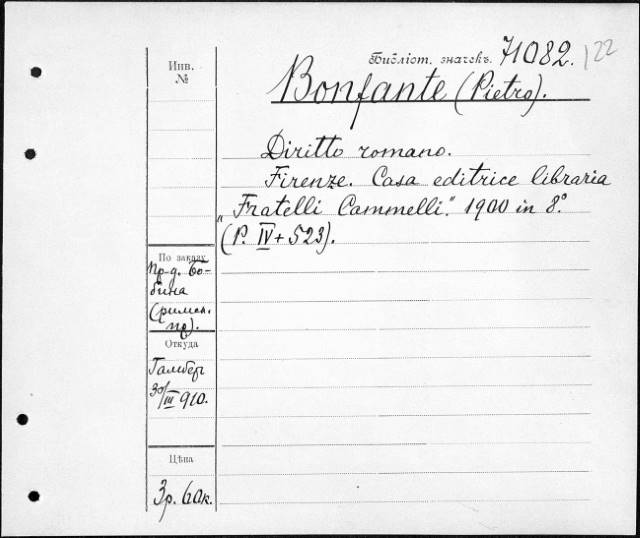 Инв.
№
Библіот. значекъ. 71082. 122
Bonfante (Pietro).
Diritto romano.
Firenze. Casa editrice libraria
„Fratelli Cammelli". 1900 in 8°.
(P. IV + 523).
По заказу
пр-д. Бо-
бина
(римск.
пр).
Откуда
Гамбер
30/III 910.
Цѣна
3р. 60к.